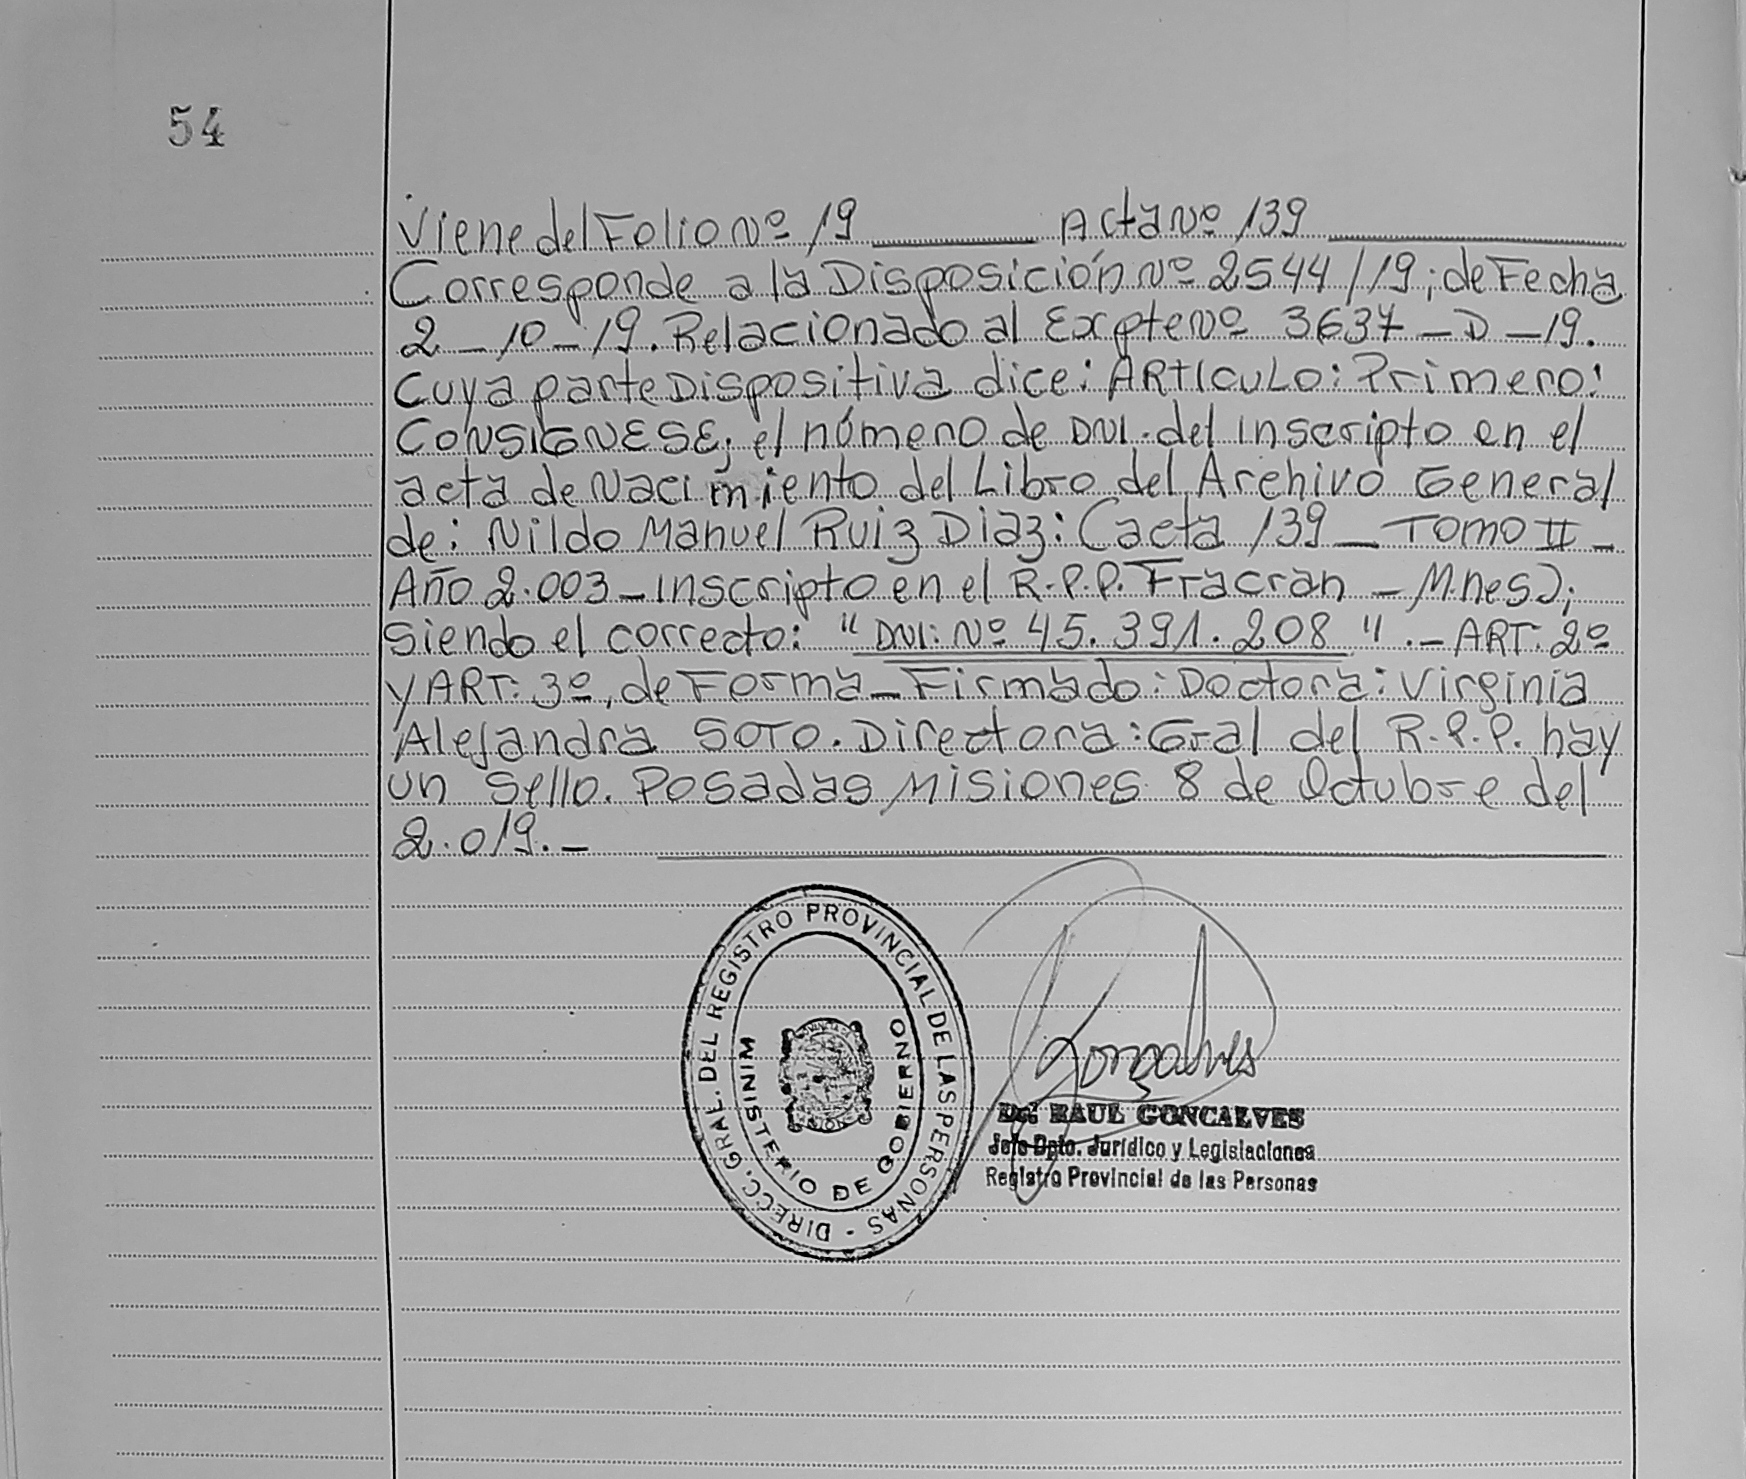 54
Viene del Folio Nº 19 ______ Acta Nº 139 ______
Corresponde a la Disposición Nº 2544/19; de Fecha
2-10-19. Relacionado al Expte Nº 3637-D-19.
Cuya parte Dispositiva dice: ARTICULO: Primero:
CONSIGNESE, el número de DNI. del inscripto en el
acta de Nacimiento del Libro del Archivo General
de: Nildo Manuel Ruiz Diaz: (acta 139 - TOMO II -
Año 2.003 - inscripto en el R.P.P. Fracran - Mnes);
siendo el correcto: "DNI: Nº 45.391.208". - ART: 2º
y ART: 3º, de Forma - Firmado: Doctora: Virginia
Alejandra SOTO. Directora: Gral del R.P.P. hay
un sello. Posadas Misiones 8 de Octubre del
2.019. -
DIRECC. GRAL. DEL REGISTRO PROVINCIAL DE LAS PERSONAS -
MINISTERIO DE GOBIERNO
Gonçalves
Dr. RAUL GONCALVES
Jefe Dpto. Jurídico y Legislaciones
Registro Provincial de las Personas